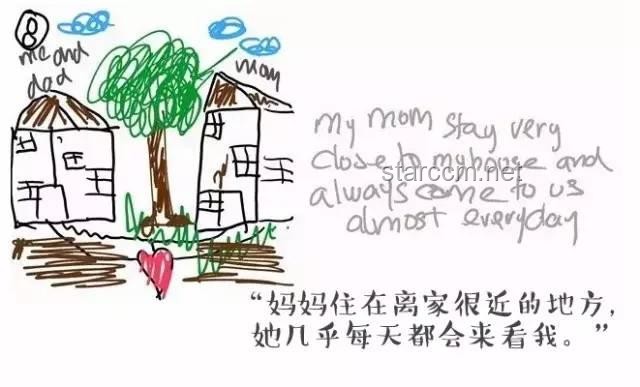 8
me and
dad
mom
my mom stay very
close to my house and
starccm.net
always come to us
almost everyday
“妈妈住在离家很近的地方，
她几乎每天都会来看我。”